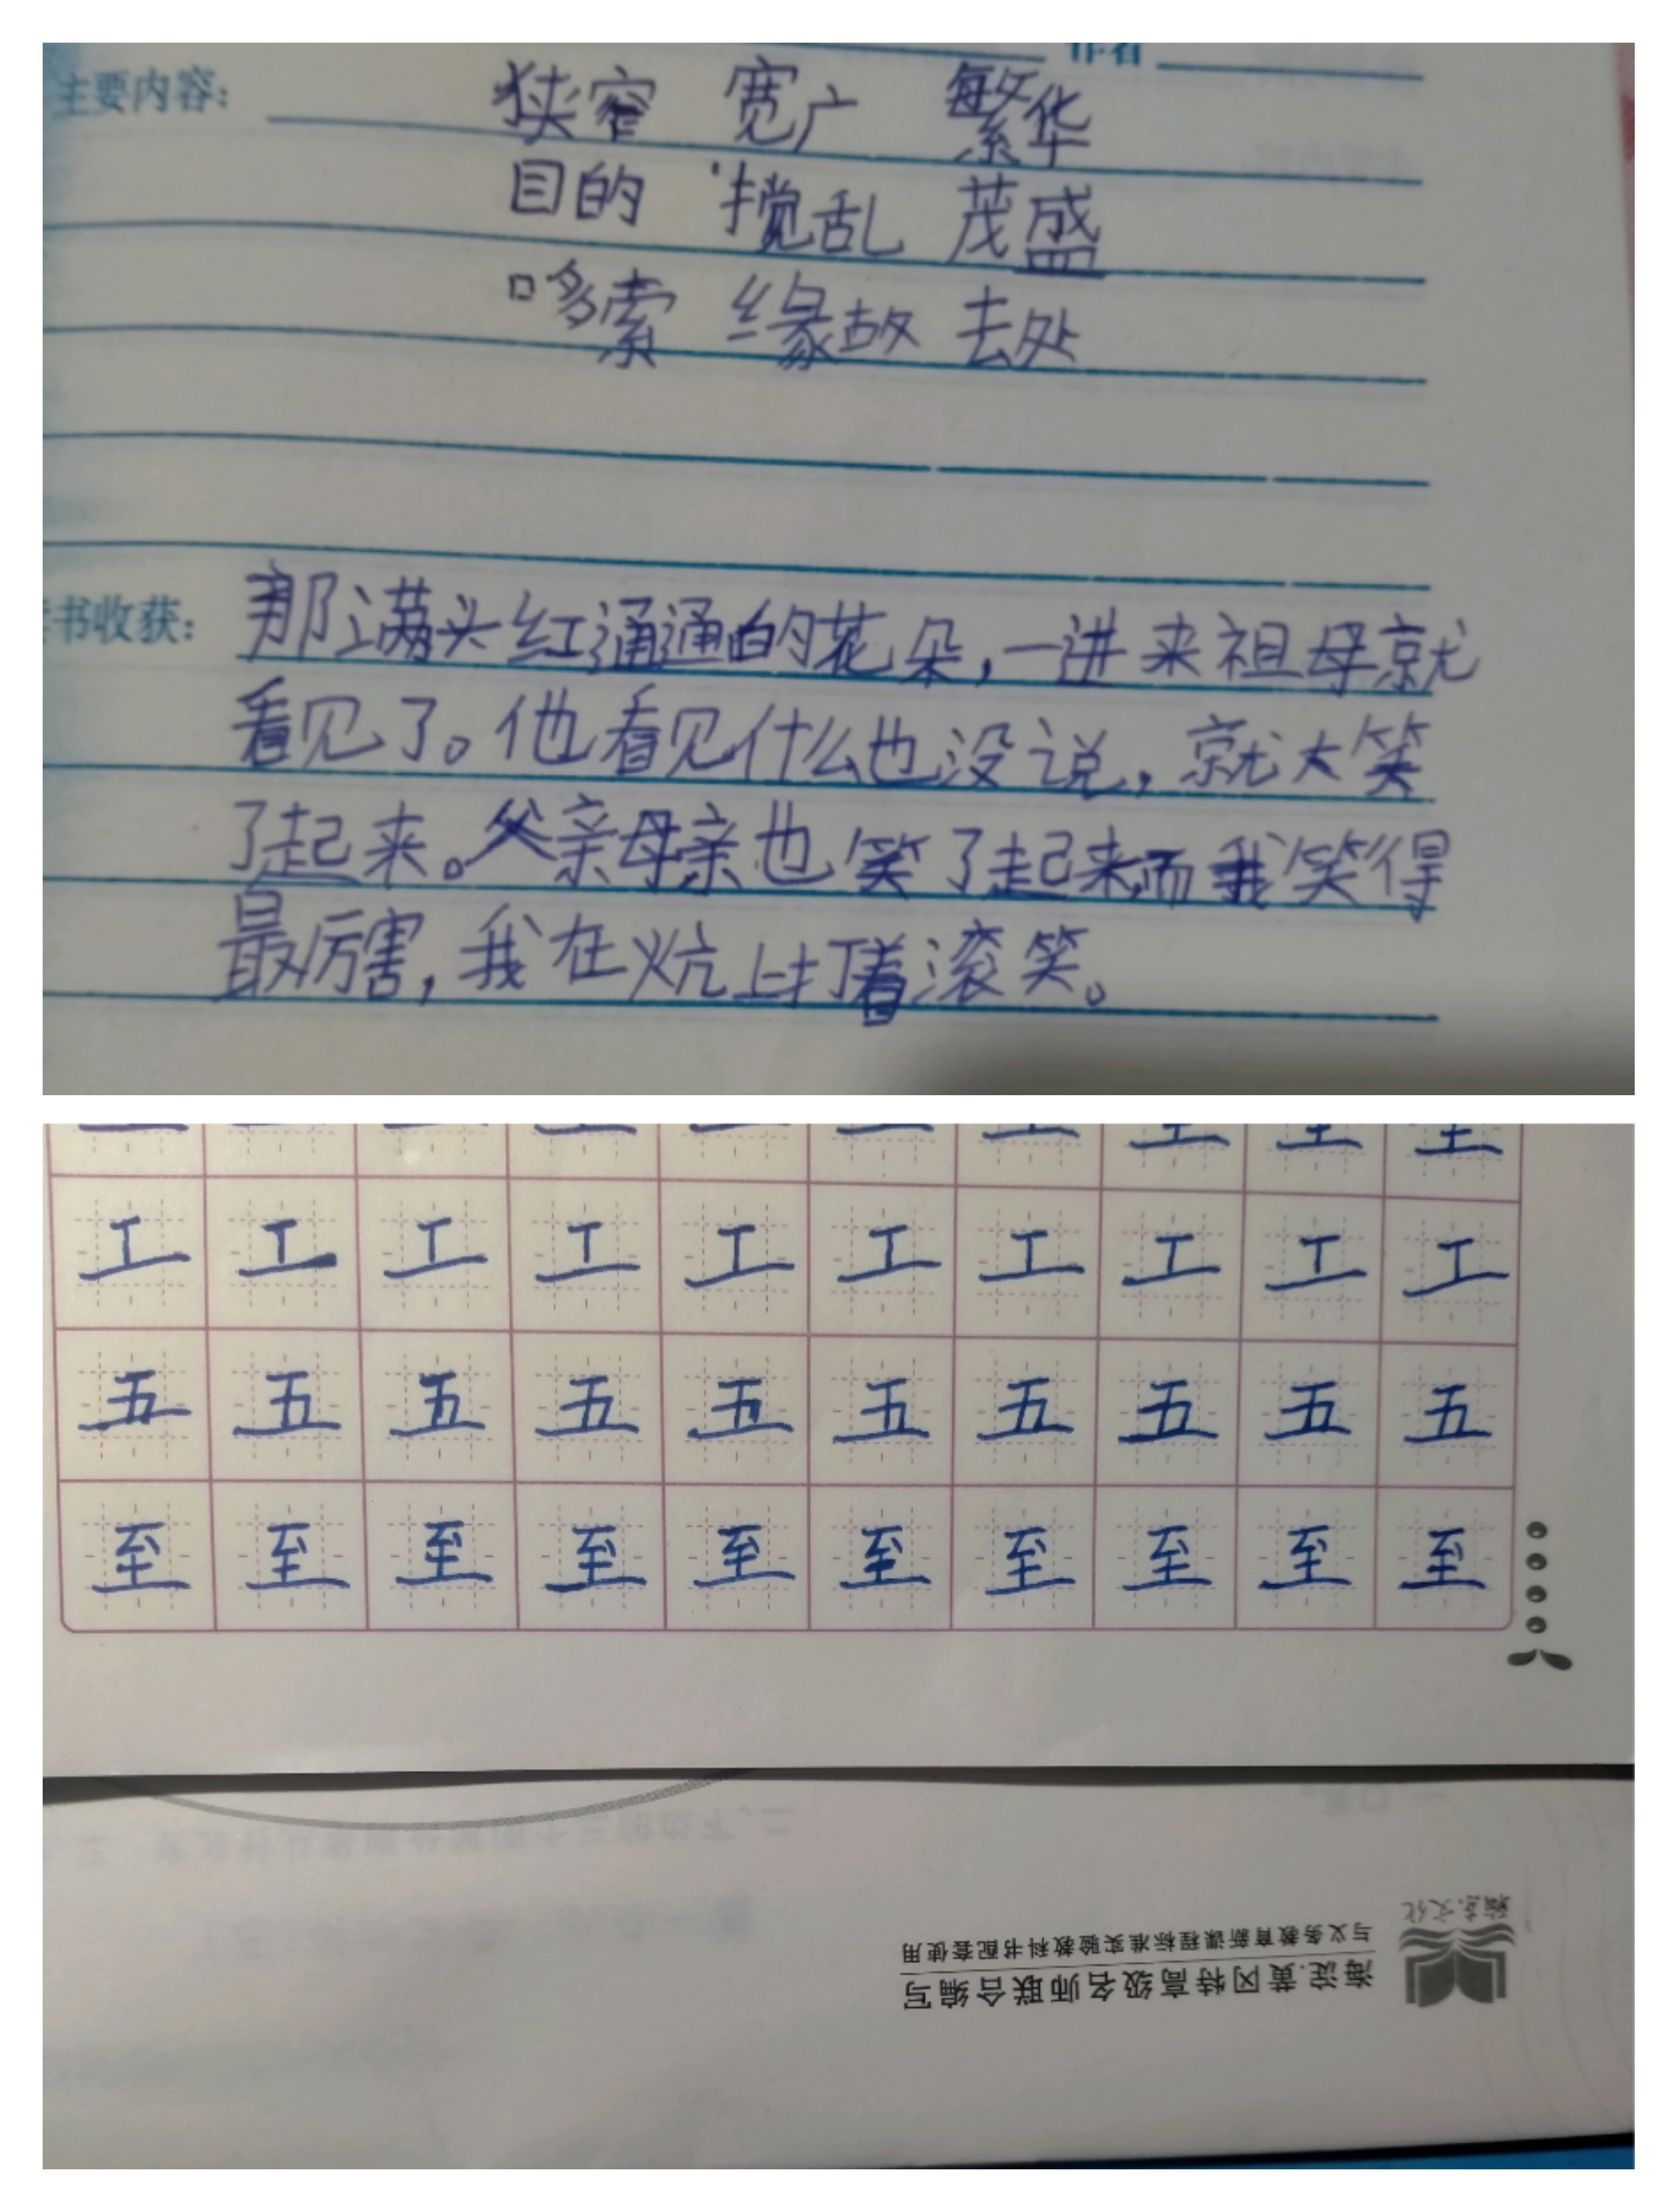 作者
主要内容：狭窄 宽广 繁华
目的 搅乱 茂盛
哆索 缘故 去处
书收获：那满头红通通的花朵，一进来祖母就
看见了。他看见什么也没说，就大笑
了起来。父亲母亲也笑了起来而我笑得
最厉害，我在炕上打着滚笑。
工 工 工 工 工 工 工 工 工 工
五 五 五 五 五 五 五 五 五 五
至 至 至 至 至 至 至 至 至 至
海淀·黄冈特高级名师联合编写
与义务教育新课程标准实验教科书配套使用